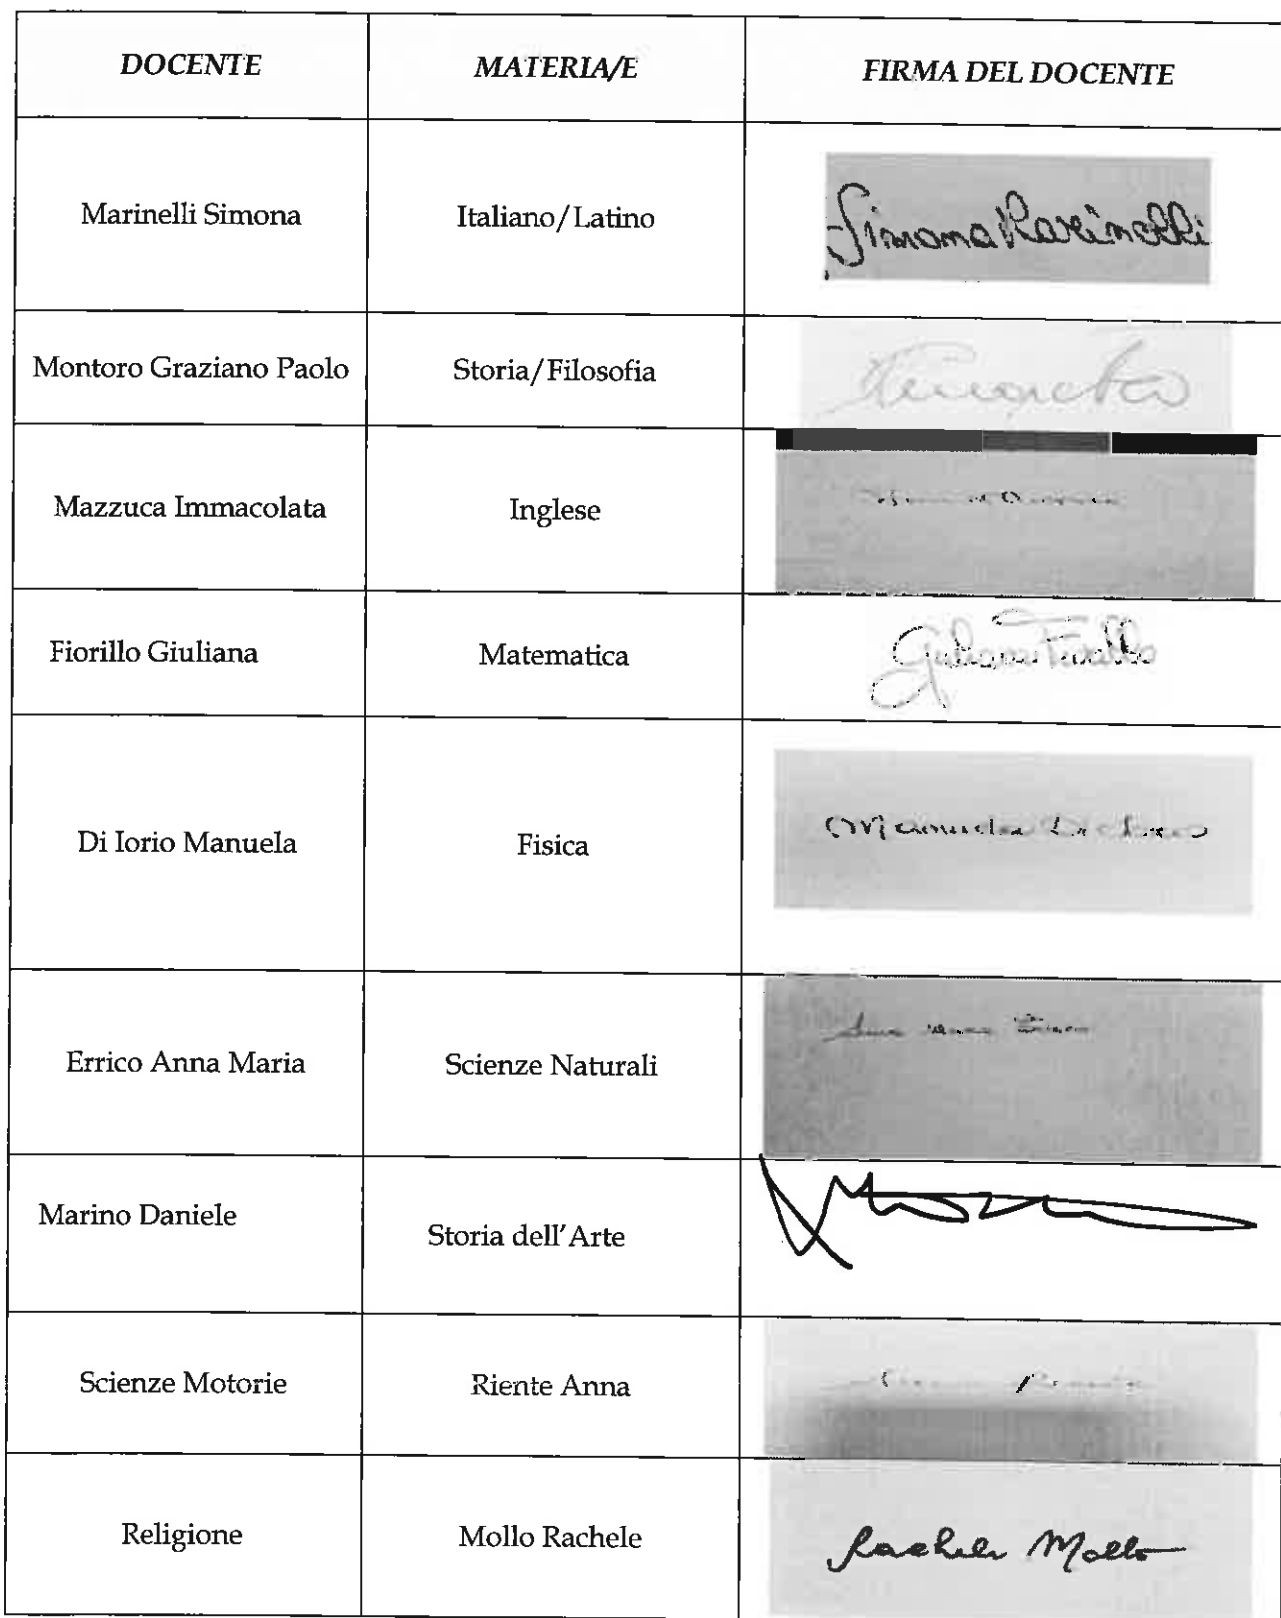 DOCENTE MATERIA/E FIRMA DEL DOCENTE
Marinelli Simona Italiano/Latino Simona Marinelli
Montoro Graziano Paolo Storia/Filosofia
Mazzuca Immacolata Inglese
Fiorillo Giuliana Matematica Giuliana Fiorillo
Di Iorio Manuela Fisica Manuela Di Iorio
Errico Anna Maria Scienze Naturali Anna Maria Errico
Marino Daniele Storia dell'Arte
Scienze Motorie Riente Anna
Religione Mollo Rachele Rachele Mollo